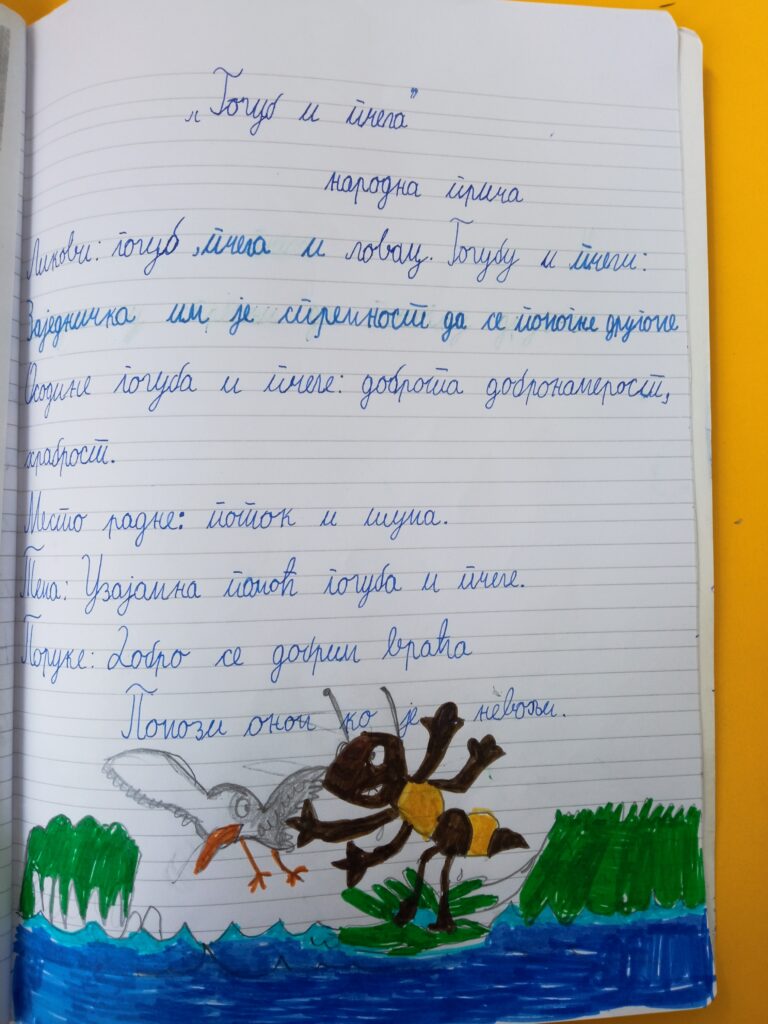 „Голуб и пчела”
народна прича
Ликови: голуб, пчела и ловац. Голубу и пчели:
Заједничка им је спремност да се помогне другоме
Особине голуба и пчеле: доброта добронамерост,
храброст.
Место радње: поток и шума.
Тема: Узајамна помоћ голуба и пчеле.
Поруке: Добро се добрим враћа
Помози оном ко је невољи.